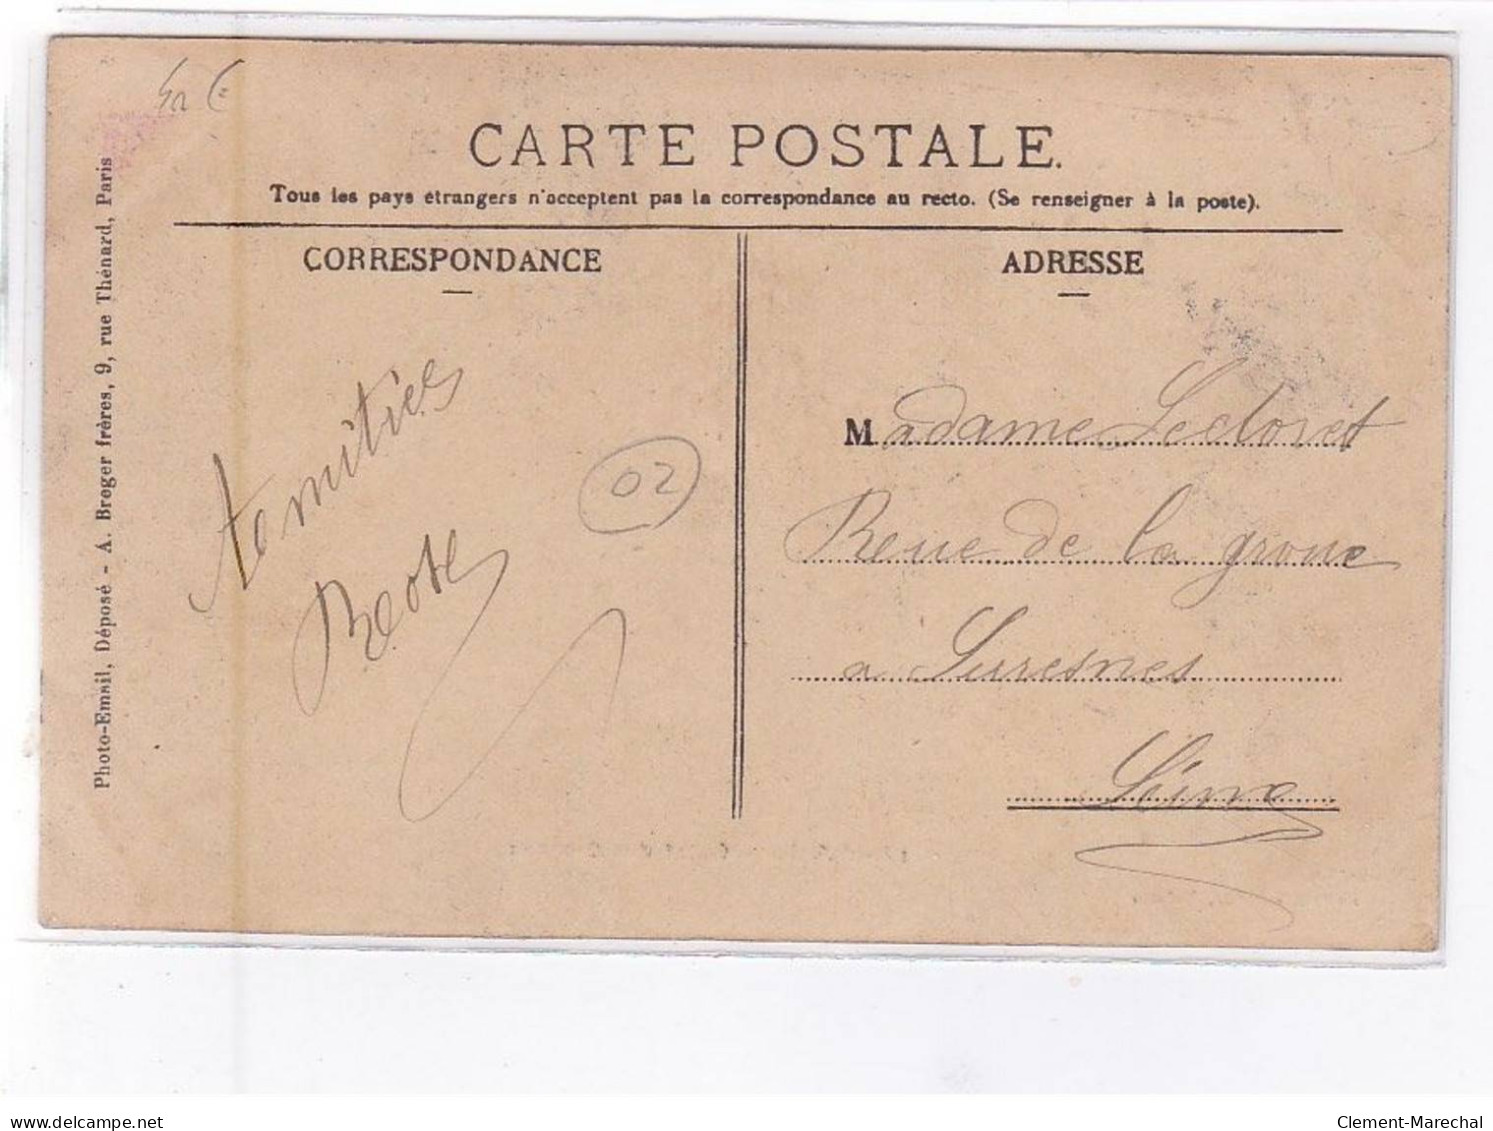 CARTE POSTALE.
Tous les pays étrangers n'acceptent pas la correspondance au recto. (Se renseigner à la poste).
CORRESPONDANCE
ADRESSE
Photo-Email, Déposé - A. Breger frères, 9, rue Thénard, Paris
02
Madame Lecloret
Reue de la groue
a Suresnes
Seine
delcampe.net
Clement-Marechal